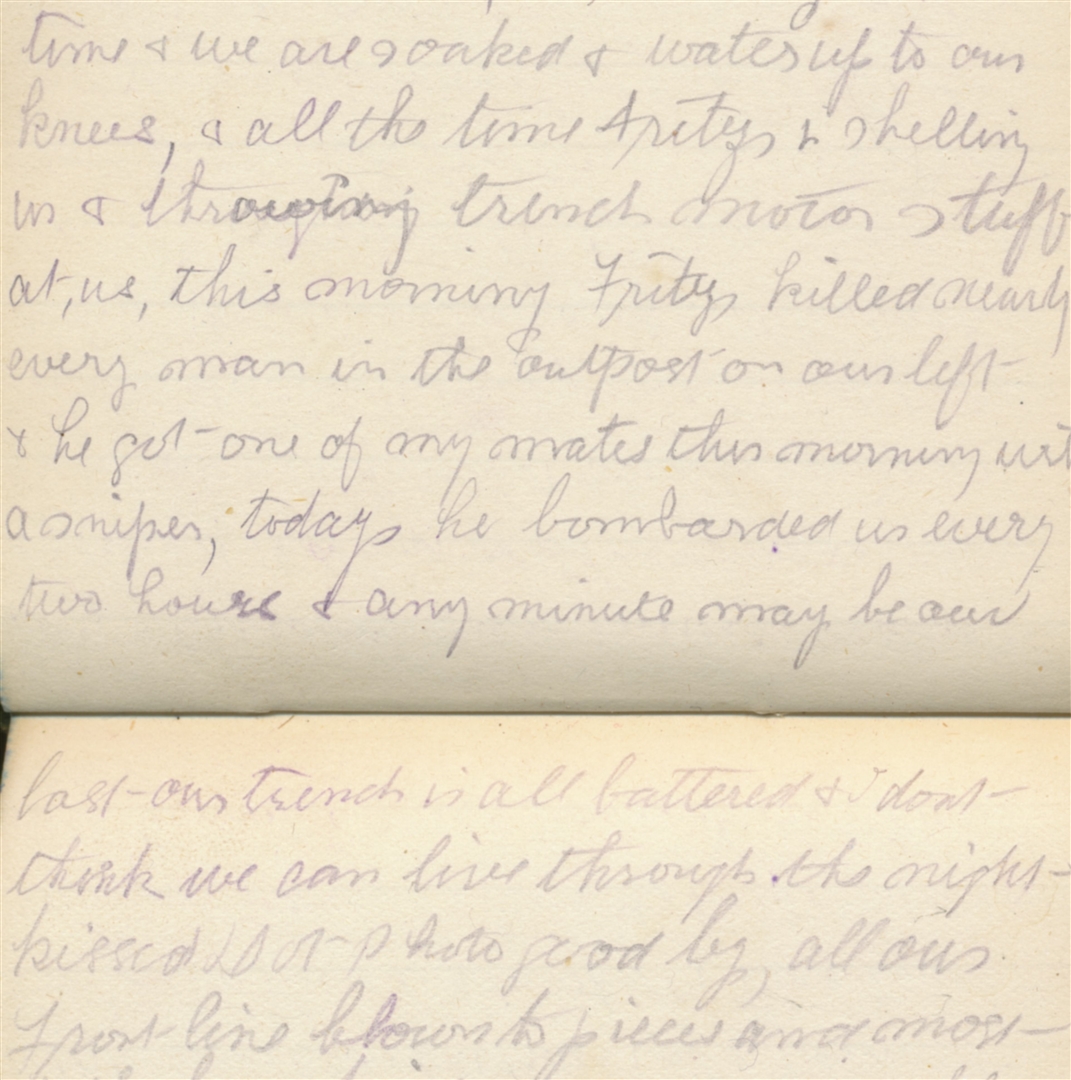 time & we are soaked & water up to our
knees, & all the time Fritz is shelling
us & throwing trench motor stuff
at, us, this morning Fritz killed nearly
every man in the outpost on our left
& he got one of my mates this morning wit
a sniper, today he bombarded us every
two hours & any minute may be our
last our trench is all battered & I dont
think we can live through the night
kissed Dot Photo good by, all our
Front line blown to pieces and most